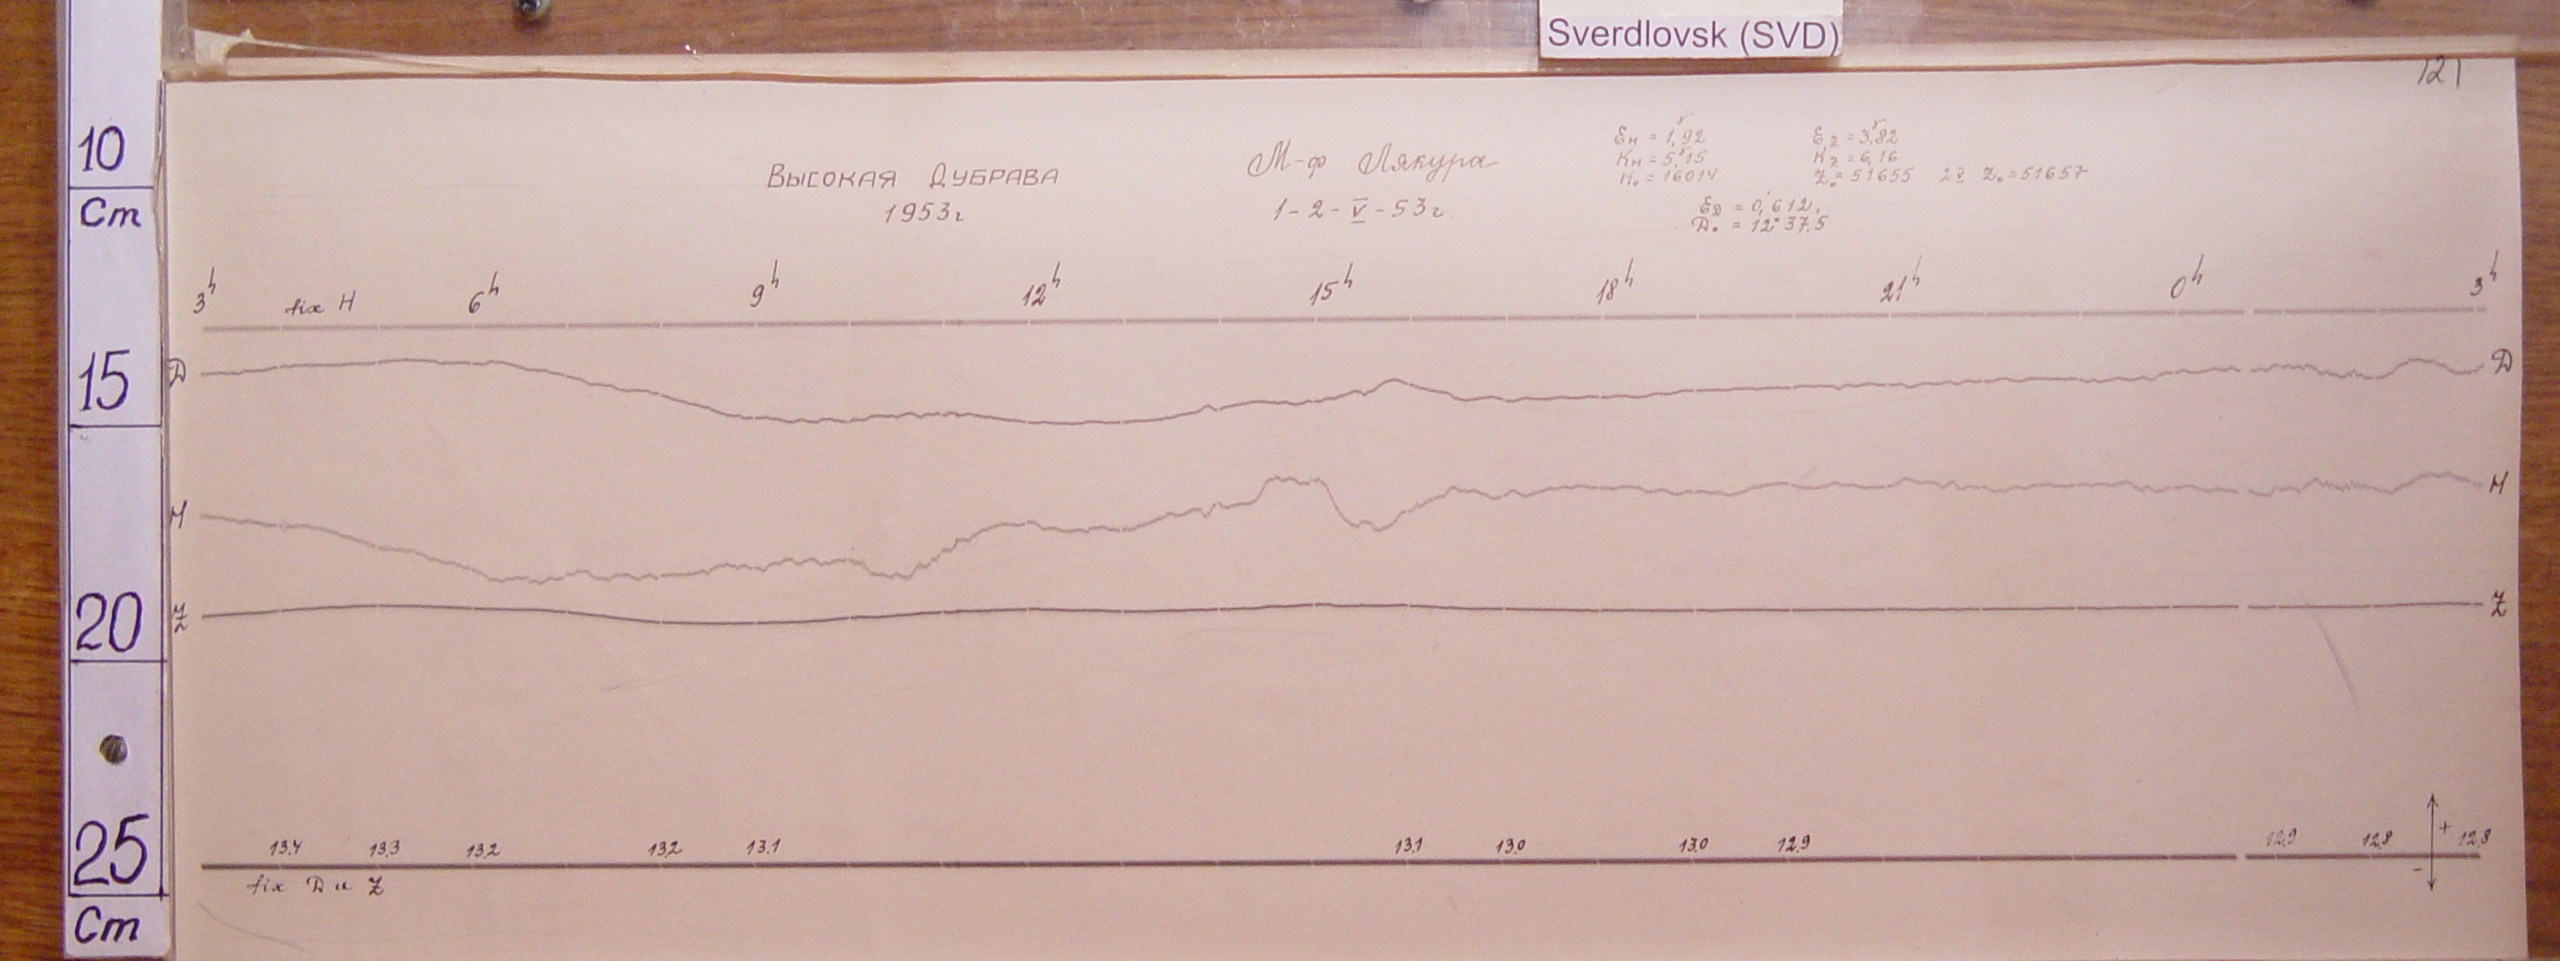 Sverdlovsk (SVD)
121
10
Cm
15
20
25
Cm
Высокая Дубрава
1953г
М-ф Лякура
1-2-V-53г.
Ɛн = 1,γ92
Kн = 5,γ15
H₀ = 16014
Ɛz = 3,γ82
Kz = 6,16
Z₀ = 51655 2V Z₀ = 51657
ƐD = 0,′612,
D₀ = 12°37,5
3h fix H 6h 9h 12h 15h 18h 21h 0h 3h
D D
H H
Z Z
13,4 13,3 13,2 13,2 13,1 13,1 13,0 13,0 12,9 12,9 12,8 + 12,8
-
fix D и Z